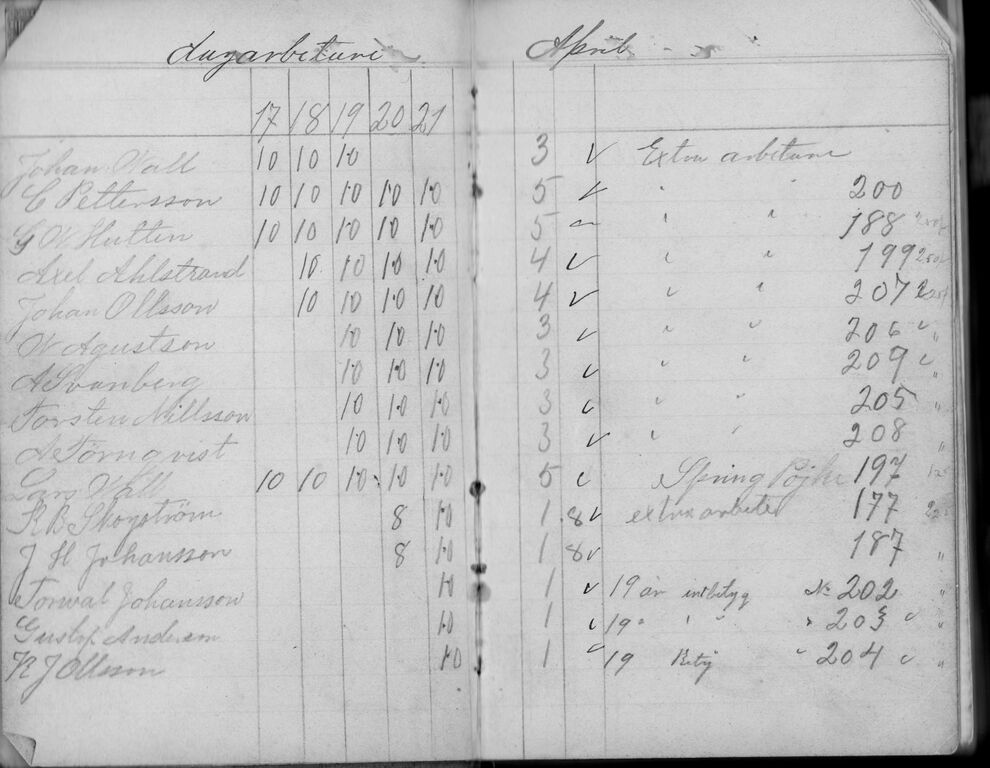 April
17 18 19 20 21
Johan Wall 10 10 10 3 Extra arbetare
C Pettersson 10 10 10 10 10 5 " " 200
G W Hutten 10 10 10 10 10 5 " " 188
Axel Ahlstrand 10 10 10 10 4 " " 199
Johan Ollsson 10 10 10 10 4 " " 207
W Agustson 10 10 10 3 " " 206 "
A Svanberg 10 10 10 3 " " 209 "
Torsten Nillsson 10 10 10 3 " " 205 "
A Törnqvist 10 10 10 3 " " 208 "
Lars Wall 10 10 10 10 10 5 Spring Pojke 197
K B Skogström 8 10 1 8 extra arbeter 177
J H Johansson 8 10 1 8 187 "
Torwal Johansson 10 1 19 år No 202 "
Gustaf Anderson 10 1 19 " " " 203 "
K J Ollsson 10 1 19 " 204 "